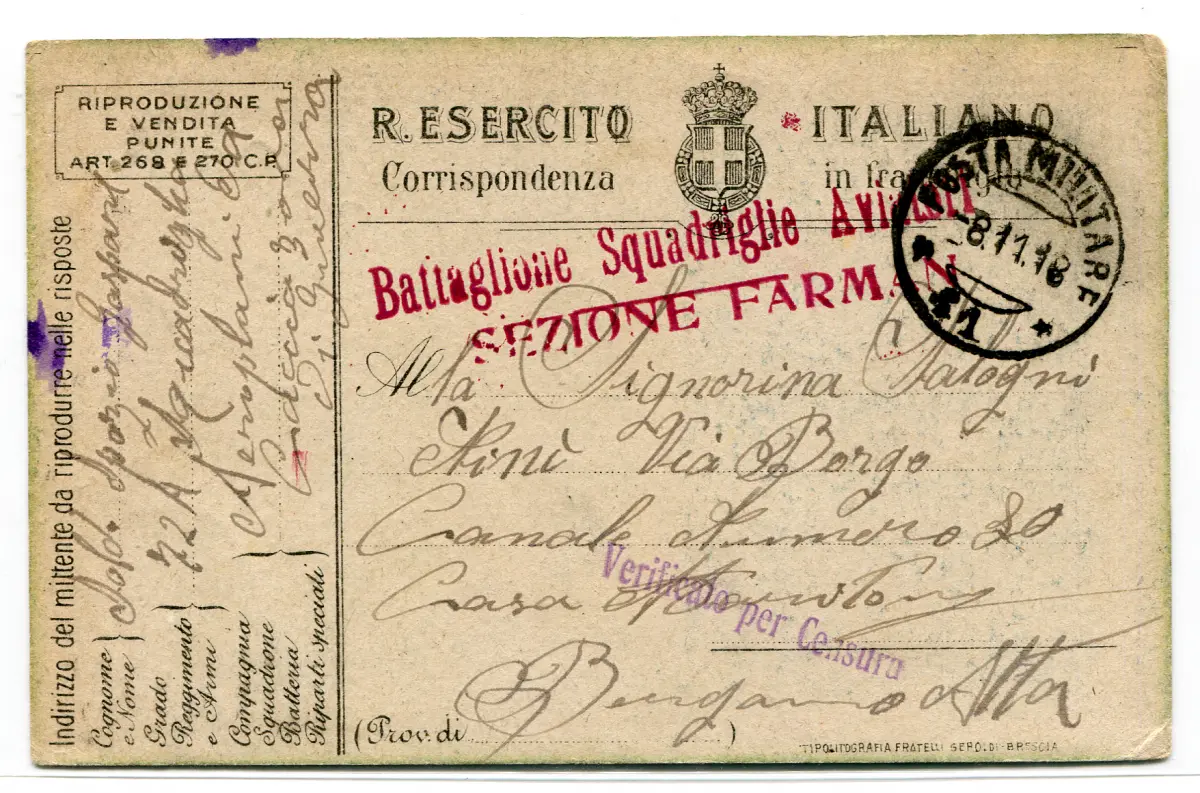 RIPRODUZIONE
E VENDITA
PUNITE
ART. 268 E 270 C.P.
R. ESERCITO ITALIANO
Corrispondenza in franchigia
Battaglione Squadriglie Aviatori
SEZIONE FARMAN
POSTA MILITARE
-8.11.18
Alla Signorina Salogni
Ninì Via Borgo
Canale Numero 30
Casa
Verificato per Censura
Bergamo Alta
(Prov. di )
TIPOLITOGRAFIA FRATELLI GEROLDI-BRESCIA
Indirizzo del mittente da riprodurre nelle risposte
Cognome
e Nome
Grado
Reggimento
e Armi
Compagnia
Squadrone
Batteria
Riparti speciali
Sold.
72A Squadriglia
Aeroplani